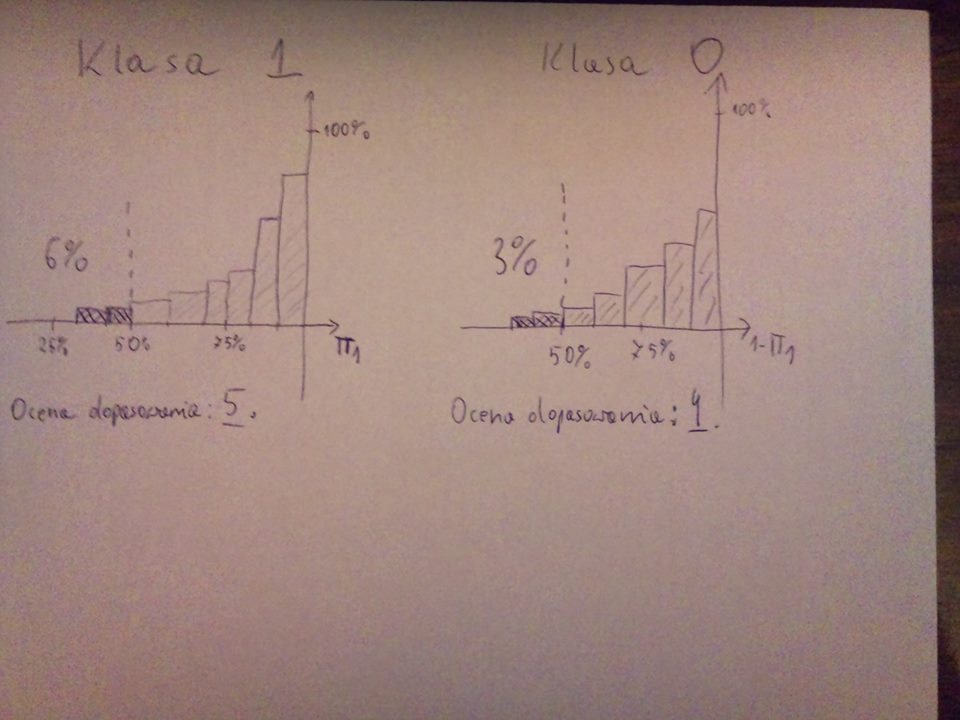 Klasa 1
100%
6%
25% 50% 75% π1
Ocena dopasowania: 5.
Klasa 0
100%
3%
50% 75% 1-π1
Ocena dopasowania: 4.